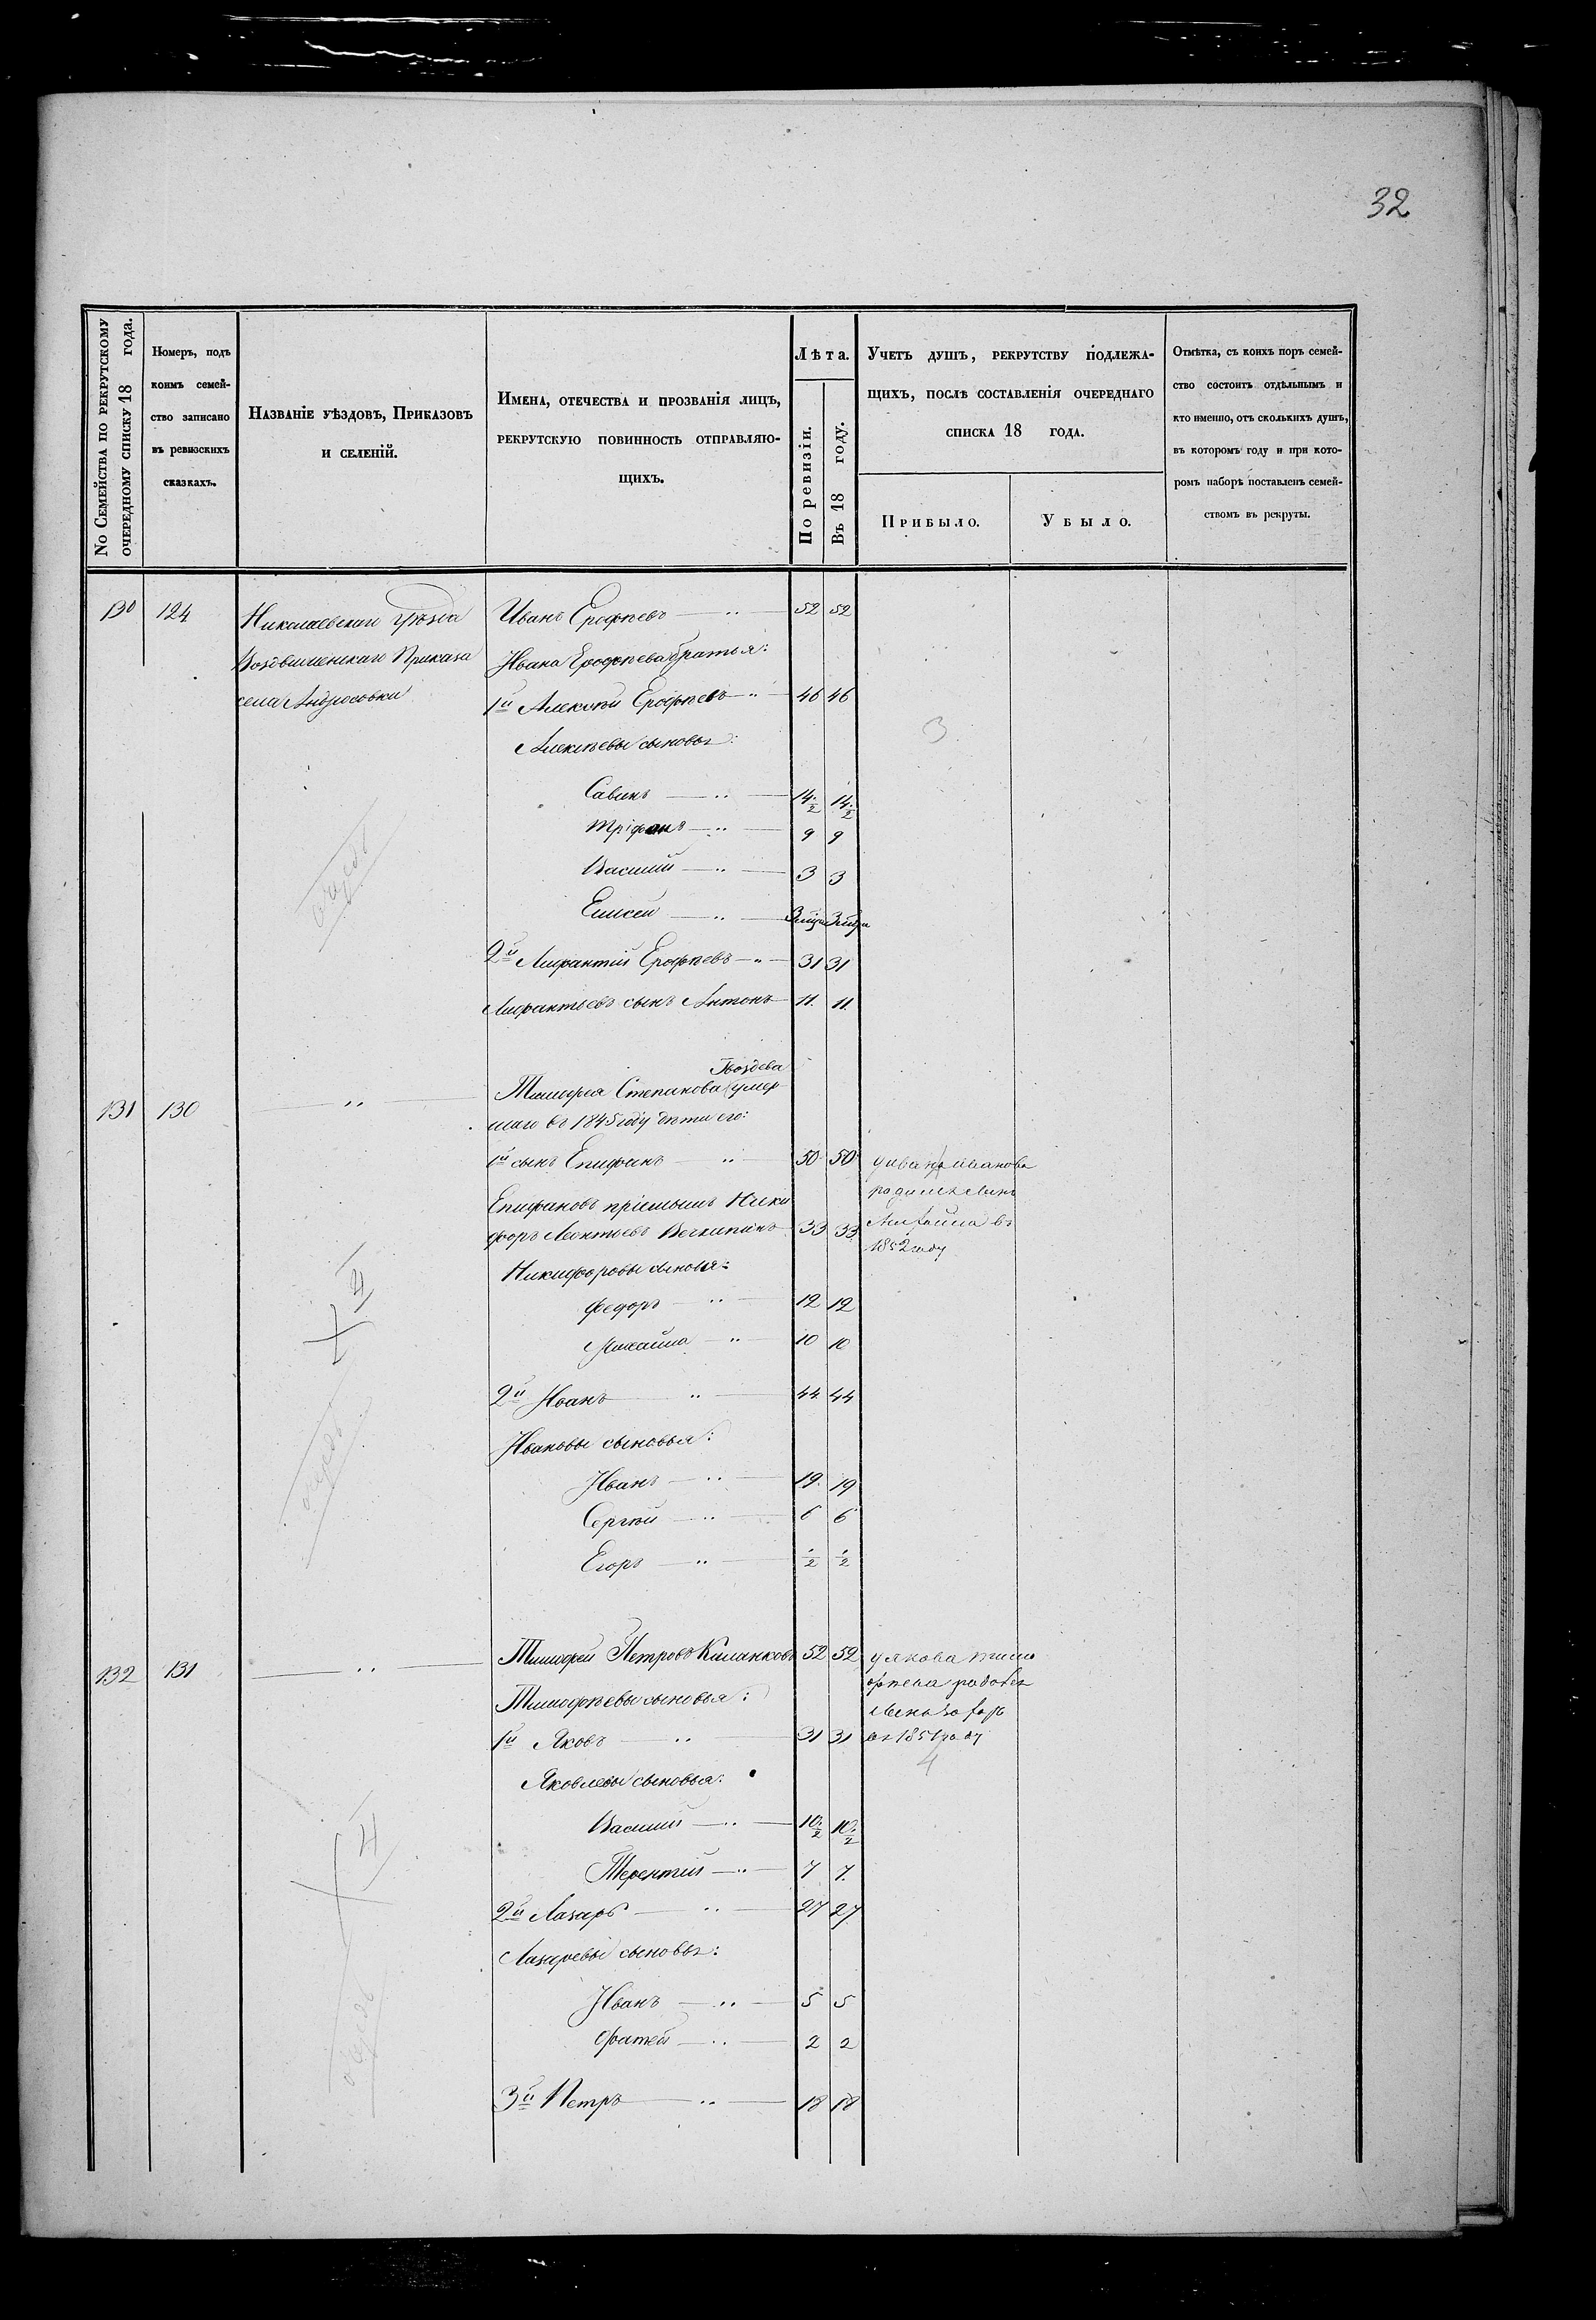 32
№ Семейства по рекрутскому очередному списку 18 года.
Номеръ, подъ коимъ семей-ство записано въ ревизскихъ сказкахъ.
Названіе уѣздовъ, Приказовъ и селеній.
Имена, отечества и прозванія лицъ, рекрутскую повинность отправляю-щихъ.
Лѣта.
По ревизіи.
Въ 18 году.
Учетъ душъ, рекрутству подлежа-щихъ, послѣ составленія очереднаго списка 18 года.
Прибыло.
Убыло.
Отмѣтка, съ коихъ поръ семей-ство состоитъ отдѣльнымъ и кто именно, отъ сколькихъ душъ, въ которомъ году и при кото-ромъ наборѣ поставленъ семей-ствомъ въ рекруты.
130 124 Николаевскаго уѣзда Иванъ Ерофѣевъ — " — 52 52
Воздвиженскаго Приказа Ивана Ерофѣева братья:
села Андросовки 1й Алексѣй Ерофѣевъ — " — 46 46
3
Алексѣевы сыновья:
Савинъ — " — 14½ 14½
Тріфонъ — " — 9 9
Василій — " — 3 3
очередь
Елисей — " —
2й Лифантій Ерофѣевъ — " — 31 31
Лифантьевъ сынъ Антонъ 11. 11.
Гвоздева
131 130 — " — Тимофея Степанова (умер
шаго въ 1845 году дѣти его:
1й сынъ Епифанъ — " — 50 50 у Ивана Иванова
родился сынъ
Епифановъ пріемышъ Ники
форъ Леонтьевъ 33 33 Михайла въ
1852 году
4
Никифоровы сыновья:
Федоръ — " — 12 12
Михайла — " — 10 10
2й Иванъ — " — 44 44
Ивановы сыновья:
очередь
Иванъ — " — 19. 19
Сергѣй — " — 6 6
Егоръ — " — ½ ½
132 131 — " — Тимофей Петровъ Каланковъ 52 52 у Якова Тимо
фѣева родовся
Тимофѣевы сыновья:
сынъ
1й Яковъ — " — 31 31 въ 1851 году
4
Яковлевы сыновья:
Василій — " — 10½ 10½
4
Терентій — " — 7 7.
2й Лазарь — " — 27 27
Лазаревы сыновья:
Иванъ — " — 5 5
очередь
Фатей — " — 2 2
3й Петръ — " — 18 18